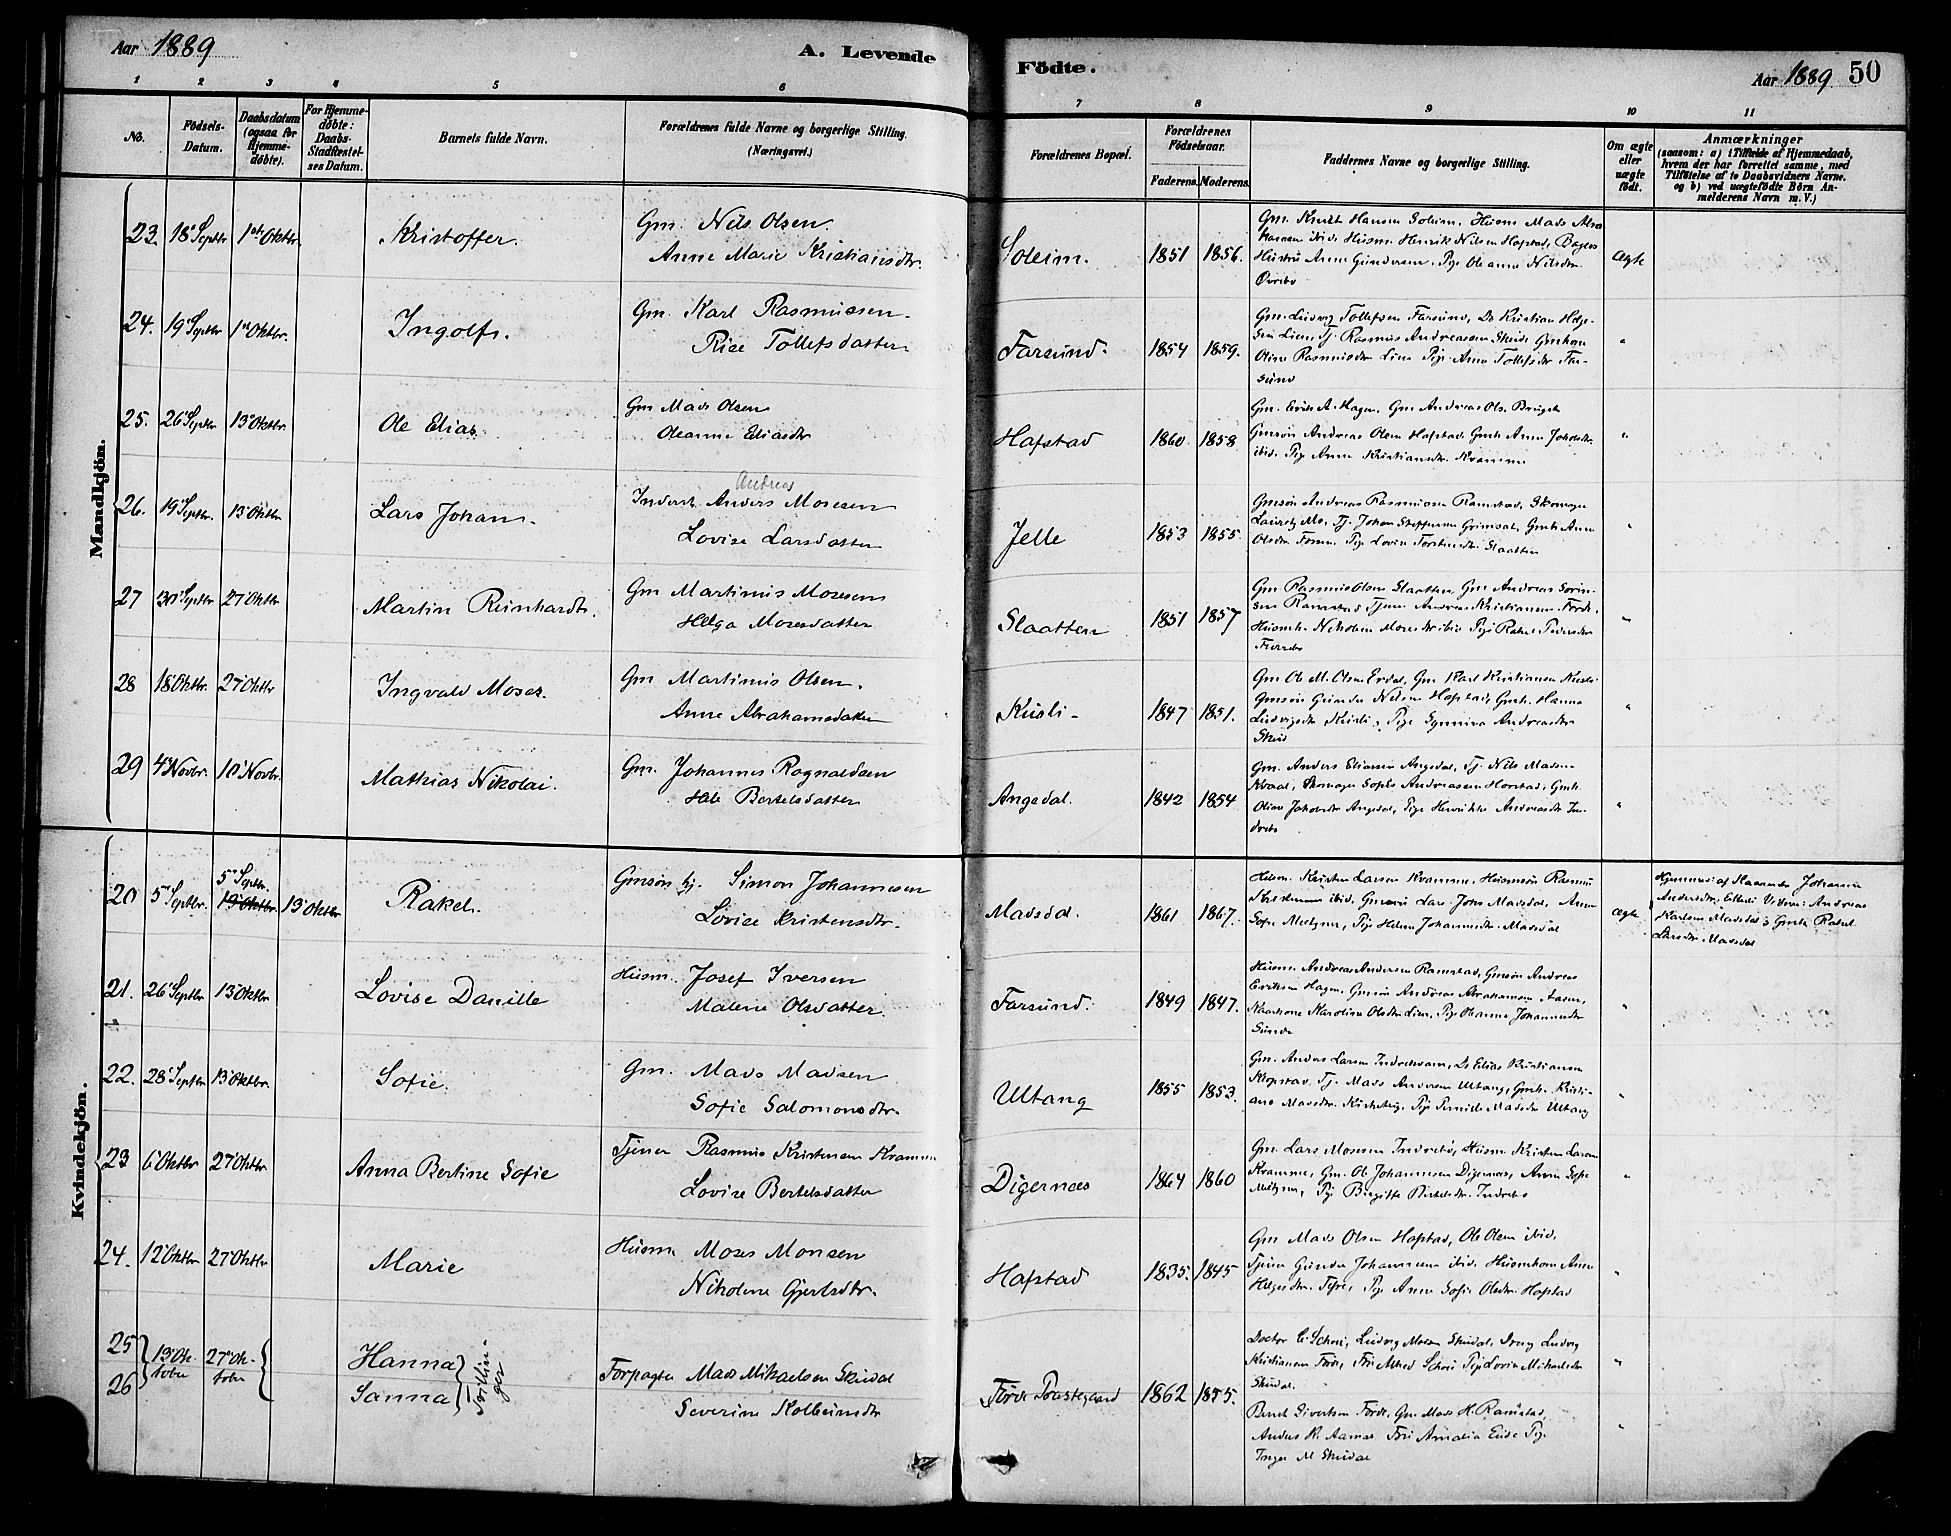 Aar 1889
A. Levende
Födte.
Aar 1889
50
1 2 3 4 5 6 7 8 9 10 11
No.
Födsels-
Datum.
Daabsdatum
(ogsaa for
Hjemme-
döbte).
For Hjemme-
döbte:
Daabs-
Stadfæstel-
ses Datum.
Barnets fulde Navn.
Forældrenes fulde Navne og borgerlige Stilling.
(Næringsvei.)
Forældrenes Bopæl.
Forældrenes
Födselsaar.
Faderens. Moderens.
Faddernes Navne og borgerlige Stilling.
Om ægte
eller
uægte
födt.
Anmærkninger
(saasom: a) i Tilfælde af Hjemmedaab,
hvem der har forrettet samme, med
Tilföielse af to Daabsvidners Navne.
og b) ved uægtefödte Börn An-
melderens Navn m. V.)
Mandkjön.
23. 18 Septbr 1st Oktbr. Kristoffer. Gm. Nils Olsen.
Anne Marie Kristiansdtr. Soleim. 1851 1856. Ægte
Gm. Knut Hansen Soleim, Husm Mads
ibid. Husm. Henrik Nilsen Hafstad, Bagers
Hustru Anne Gundersen, Pige Oleanne Nilsdtr
Övrebö
24. 19 Septbr 1st Oktbr. Ingolf. Gm. Karl Rasmussen.
Rise Tollefsdatter Farsund. 1854 1859. "
Gm. Ludvig Tollefsen Farsund, Do Kristian Helge-
sen Lien, Tj. Rasmus Andreassen Gmkone
Oline Rasmusdtr Lien Pige Anne Tollefsdtr Far-
sund
25. 26 Septbr 13 Oktbr. Ole Elias. Gm Mads Olsen
Oleanne Eliasdtr Hafstad 1860 1858 "
Gm. A. Hagen, Gm Andreas Ols.
Gmsön Andreas Olsen Hafstad, Gmk Anne
ibid. Pige Anne Kristiansdtr. Kvamme
Andreas
26. 19 Septbr. 13 Oktbr Lars Johan. Inderst Anders Mosesen
Lovise Larsdatter Jelle 1853 1855. "
Gmsön Andreas Rasmussen Ramstad, Skomager
Mo, Tj. Johan Steffensen Grimset, Gmk Anne
Olsdtr Pige Lovise Slaatten
27 30 Septbr 27 Oktbr Martin Reinhardt. Gm Martinus Mosesen
Helga Mosesdatter Slaatten 1851 1857 "
Gm Rasmus Olsen Slaatten, Gm Andreas Sörin-
sen Ramstad Tjener Andreas Kristiansen Förde,
Husmk. Nikoline Mosesdtr ibid Pige Rakel Pedersdtr
28 18 Oktbr. 27 Oktbr Ingvald Moses. Gm Martinus Olsen.
Anne Abrahamsdatter Kusli 1847 1851. "
Gm Ole M. Olsen Erdal, Gm Karl Kristiansen Kusli
Gmsön Gunder Nilsen Hafstad, Gmk. Hanna
Ludvigsdtr Kusli, Pige Synneva Andreasdtr
29 4 Novbr. 10 Novbr. Mathias Nikolai. Gm. Johannes Rognaldsen
Bertelsdatter Angedal. 1842 1854 "
Gm. Anders Eliassen Angedal, Tj. Nils Madsen
Kvaal, Skomager Andreassen Horstad, Gmk.
Oline Jakobsdtr Angedal, Pige Henrikke Andreasdtr In-
drebö
Kvindekjön.
20 5 Septbr. 5 Septbr. 13 Oktbr. 13 Oktbr Rakel. Gmsön Simon Johannesen
Lovise Kristensdtr. Madsdal. 1861 1867. Ægte
Husm. Kristen Larsen Kvamme, Husmsön Rasmus
Kristensen ibid, Gmsön Lars Johs Madsdal, Anne
Sofie Pige Helene Johannesdtr. Madsdal
Hjemmed. af Johanne
Andersdtr; Vidner: Andreas
Karlsen Madsdal & Gmk Rakel
Larsdtr Madsdal
21. 26 Septbr 13 Oktbr Lovise Danille Husm. Josef Iversen
Malene Olsdatter. Farsund. 1849 1847. "
Husm. Andreas Andersen Ramstad, Gmsön Andreas
Eriksen Hagen, Gmsön Andreas Abrahamsen Aasen,
Karoline Olsdtr Lien, Pige Oleanne Johannesdtr
Sunde
22. 28 Septbr 13 Oktbr. Sofie. Gm. Mads Madsen
Sofie Salomonsdtr. Ultang 1855 1853. "
Gm. Anders Larsen Indrekvam, Do Elias Kristiansen
Tj. Mads Andersen Ultang, Gmk. Kristi-
ane Madsdtr. Pige Pernille Madsdtr Ultang
23 6 Oktbr 27 Oktbr Anna Bertine Sofie Tjener Rasmus Kristensen Kvamme
Lovise Bertelsdatter Digernæs 1864 1860 "
Gm. Lars Mosesen Indrebö, Husm Kristen Larsen
Kvamme, Gm. Ole Johannesen Digernæs, Anne Sofie
Pige Birgitte Bertelsdtr. Indrebö
24. 12 Oktbr 27 Oktbr Marie Husm Moses Monsen
Nikoline Gjertsdtr. Hafstad 1835. 1845 "
Gm Mads Olsen Hafstad, Ole Olsen ibid,
Tjener Gunder Johannesen ibid. Husmkone Anne
Helgesdtr. Tefre, Pige Anne Sofie Olsdtr. Hafstad
25
26 13 Ok-
tober 27 Ok-
tober Hanna
Sanna Tvillin-
ger Forpagter Mads Mikaelsen Skudal
Severine Kolbeinsdtr Förde Præstegaard 1862 1855. "
Doctor C. Schou, Ludvig Madsen Skudal, Ludvig
Kristiansen Förde, Fru Schou Pige Lovise Mikaelsdtr
Skudal.
Berndt Sivertsen Förde, Gm Mads H. Ramstad,
Anders K. Aamot Fru Amalia Pige
Inger M Skudal
"